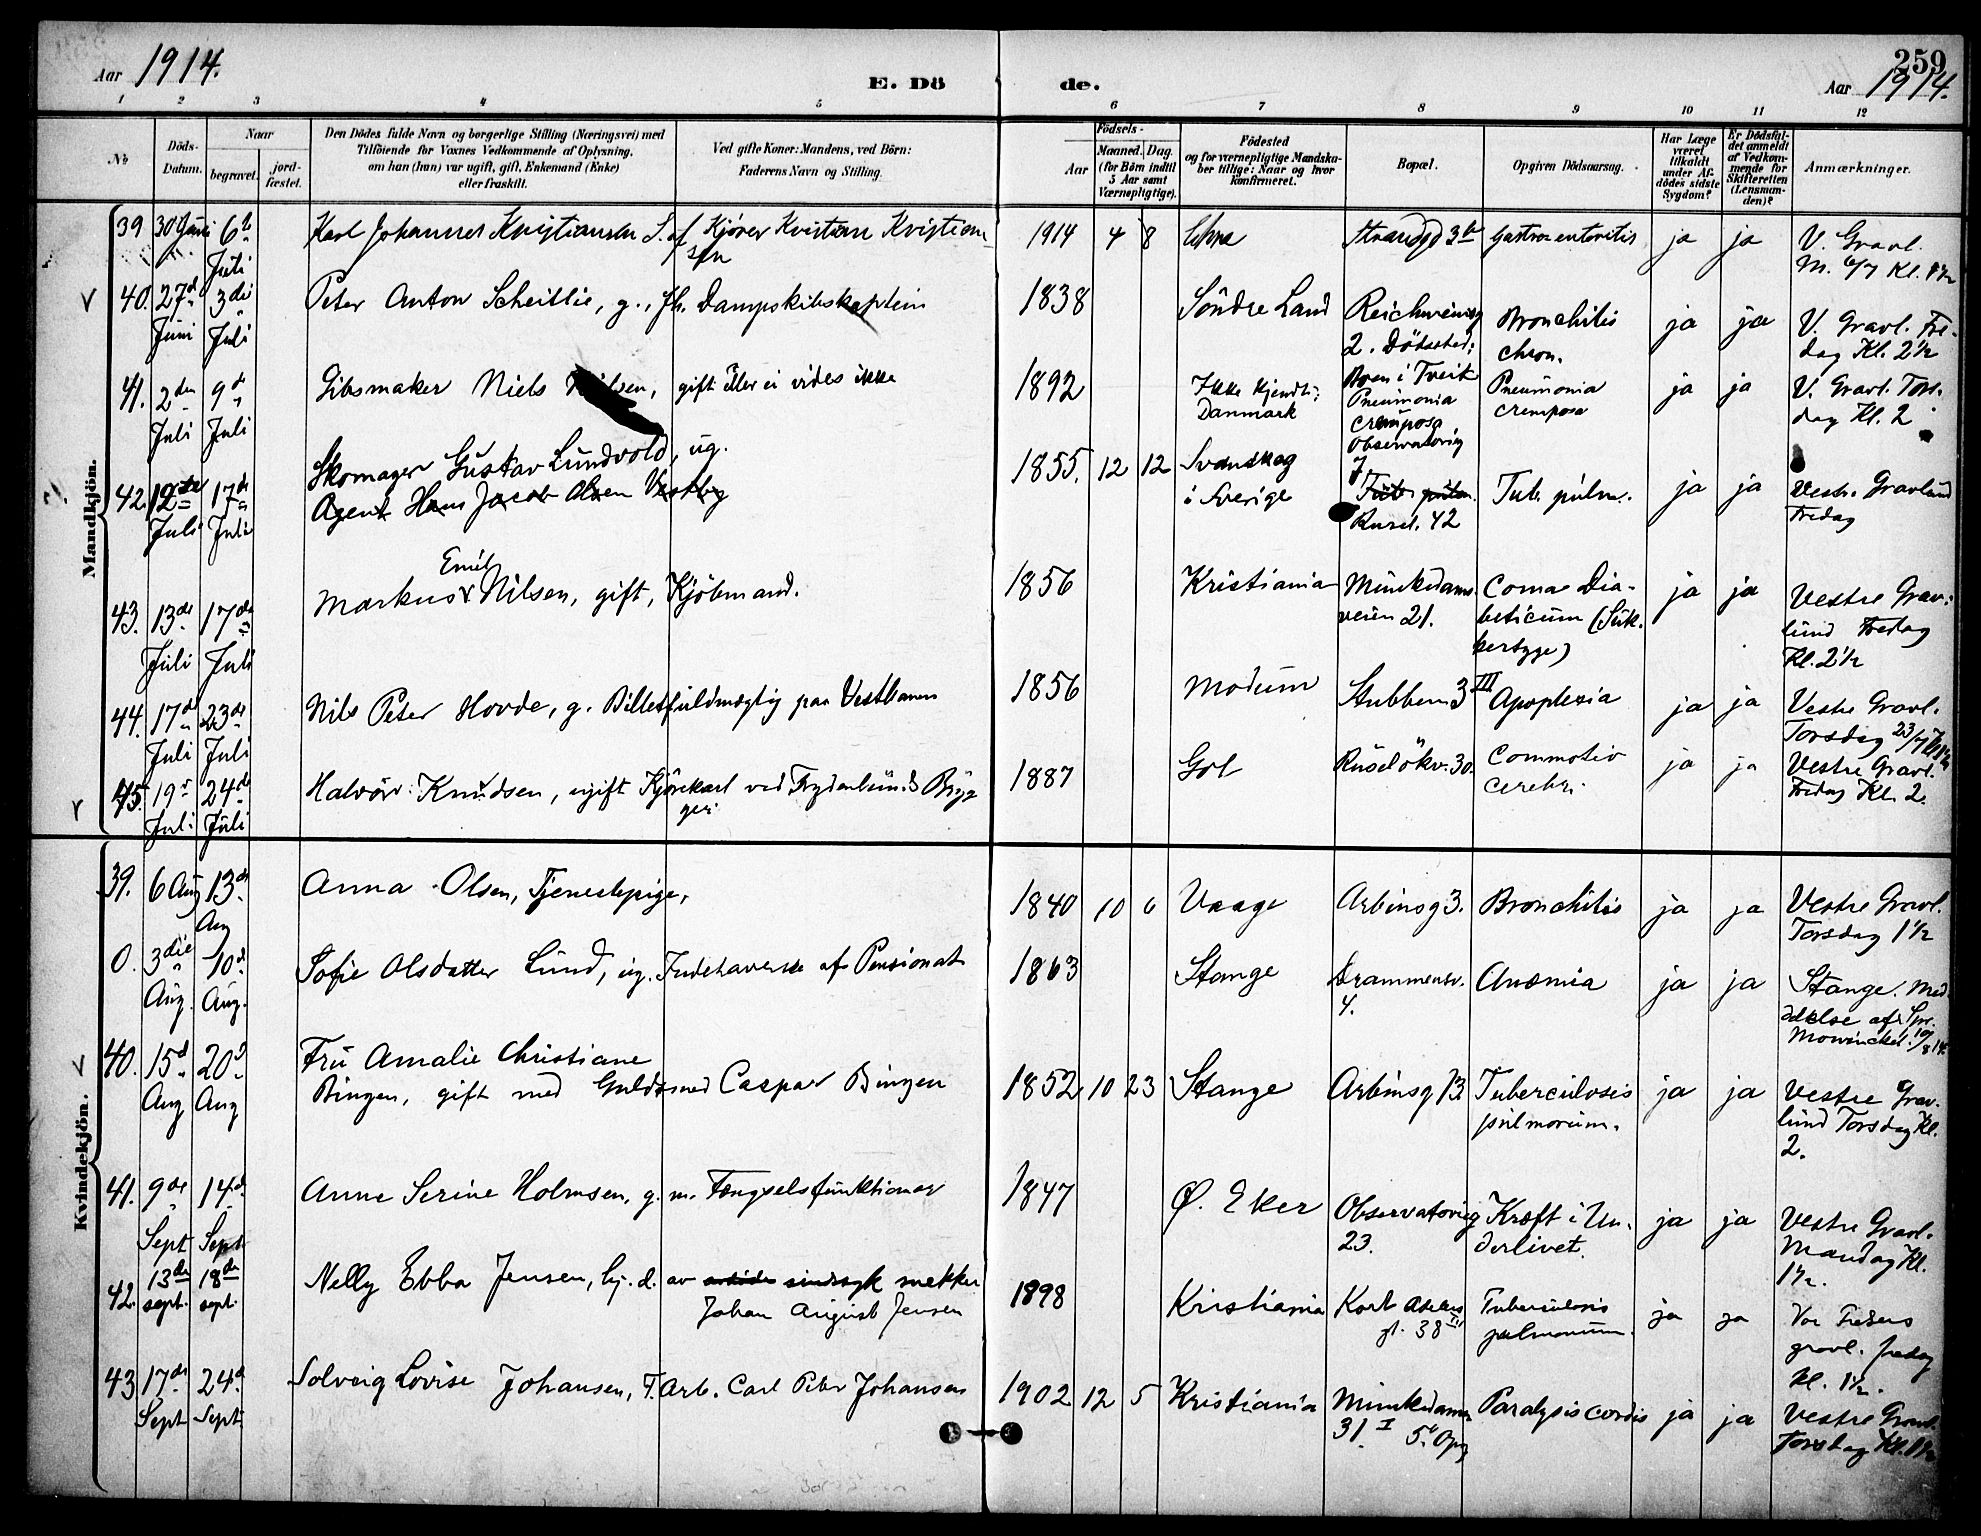 259
Aar 1914.
E. Dö de.
Aar 1914.
1 2 3 4 5 6 7 8 9 10 11 12
No
Döds-Datum.
Naar
begravet.
jord-fæstet.
Den Dödes fulde Navn og borgerlige Stilling (Næringsvei) med
Tilföiende for Voxnes Vedkommende af Oplysning,
om han (hun) var ugift, gift, Enkemand (Enke)
eller fraskilt.
Ved gifte Koner: Mandens, ved Börn:
Faderens Navn og Stilling.
Födsels-
Aar
Maaned. Dag.
(for Börn indtil
5 Aar samt
Værnepligtige).
Födested
og for værnepligtige Mandska-
ber tillige: Naar og hvor
konfirmeret.
Bopæl.
Opgiven Dödsaarsag.
Har Læge
været
tilkaldt
under Af-
dödes sidste
Sygdom?
Er Dödsfal-
det anmeldt
af Vedkom-
mende for
Skifteretten
(Lensman-
den)?
Anmærkninger.
Mandkjön.
39 30 Juni 6te Juli Karl Johannes Kristiansen S. af Kjörer Kristian Kristian
sen
1914 4 8 Strandgd 3b Gastroenteritis ja ja V. Gravl.
M. 6/7 Kl. 1½
40. 27d Juni 3die Juli Peter Anton Scheitlie, g., fh. Dampskibskaptein
1838 Söndre Land Reichweinsg
2. Dödssted: Bronchitis
chron. ja ja V. Gravl. Fre-
dag Kl. 2½
41. 2den Juli 9de Juli Gibsmaker Niels Nielsen, gift eller ei vides ikke
1892 Ikke kjendt:
Danmark
Pneumonia
crouposa
Observatorieg
7 Pneumonia
crouposa ja ja V. Gravl. Tors-
dag Kl. 2
42. 12te Juli 17de Juli Skomager Gustav Lundvold, ug.
Agent Hans Jacob Olsen Vestby
1855. 12 12 Svanskog
i Sverige Tub. pulm.
Rusel. 42 Tub. pulm. ja ja Vestr. Gravlund
Fredag
43. 13de Juli 17de Juli Markus Emil Nilsen, gift, Kjöbmand.
1856 Kristiania Munkedams-
veien 21. Comae Dia-
beticum (Suk-
kersyge) ja ja Vestre Grav-
lund Fredag
Kl. 2½
44. 17de Juli 23de Juli Nils Peter Hovde, g. Billetfuldmægtig paa Vestbanen
1856 Modum Stubben 3 III Apoplexia ja ja Vestre Gravl.
Torsdag 23/7
45 19de Juli 24de Juli Halvor Knudsen, ugift Kjörekarl ved Frydenlunds Bryg
geri
1887 Gol Ruselökv. 30. Commotio
cerebri ja ja Vestre Gravl.
Fredag Kl. 2.
Kvindekjön.
39. 6 Aug 13de Aug Anna Olsen, Tjenestepige,
1840 10 6 Vaage Arbinsg 3. Bronchitis ja ja Vestre Gravl.
Torsdag 1½
0. 3die Aug. 10de Aug. Sofie Olsdatter Lund, ug. Indehaverske af Pensionat
1863 Stange Drammensv.
4. Anæmia ja ja Stange. Med
delse af Spr.
Mowinckel 10/8 14.
40. 15d Aug 20d Aug Fru Amalie Christiane
Bingen, gift med Guldsmed Caspar Bingen
1852 10 23 Stange Arbinsg 13 Tuberculosis
pulmorum. ja ja Vestre Grav-
lund Torsdag Kl.
2.
41. 9de Sept 14de Sept Anne Serine Holmsen, g. m. Fængselsfunktionær
1847 Ø. Eker Observatorieg
23. Kræft i Un-
derlivet. ja ja Vestre Gravl.
Mandag Kl.
1½.
42. 13de sept. 18de sept. Nelly Ebba Jensen, hj. d. av sindssyk snekker
Johan August Jensen
1898 Kristiania Kort Adelers
gt. 38 III Tuberculosis
pulmonum. ja ja Vor Frelsers
gravl. fredag
kl. 1½.
43 17de Sept 24d Sept Solveig Lovise Johansen, F. Arb. Carl Peter Johansen
1902 12 5 Kristiania Munkedamsv
31 I 5. Opg Paralysis cordis ja ja Vestre Gravl.
Torsdag Kl. 1½